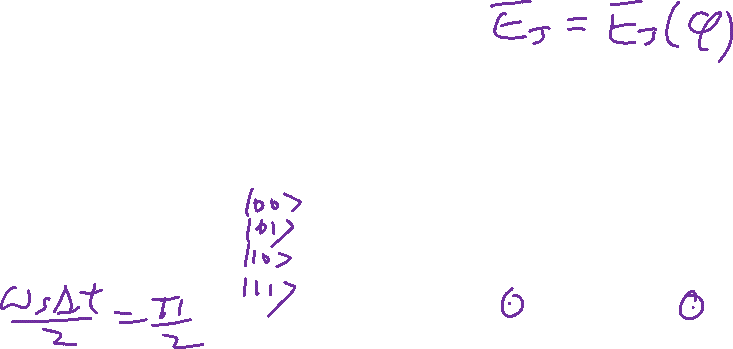 E_J = E_J(φ)
|00>
|01>
|10>
|11>
ω_sΔt/2 = π/2
⊙ ⊙